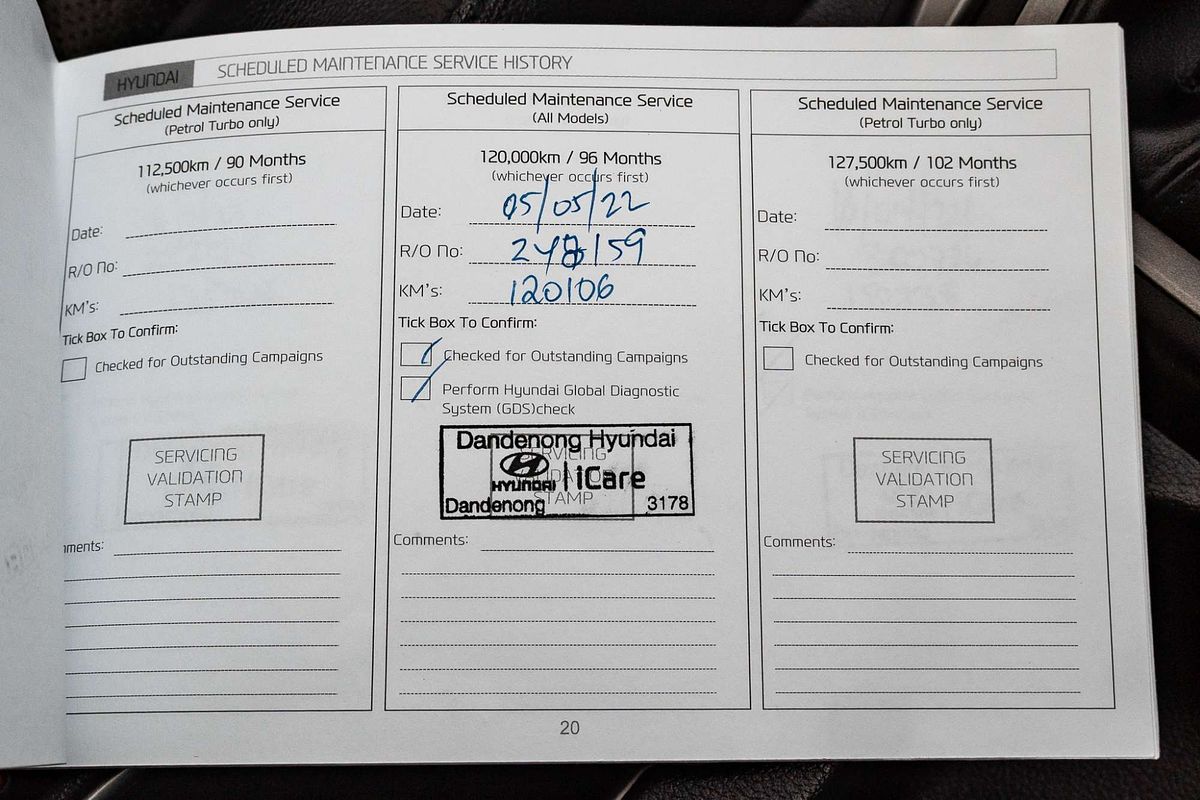 HYUNDAI SCHEDULED MAINTENANCE SERVICE HISTORY
Scheduled Maintenance Service
(Petrol Turbo only)
112,500km / 90 Months
(whichever occurs first)
Date:
R/O No:
KM's:
Tick Box To Confirm:
Checked for Outstanding Campaigns
SERVICING
VALIDATION
STAMP
mments:
Scheduled Maintenance Service
(All Models)
120,000km / 96 Months
(whichever occurs first)
Date: 05/05/22
R/O No: 248159
KM's: 120106
Tick Box To Confirm:
Checked for Outstanding Campaigns
Perform Hyundai Global Diagnostic
System (GDS)check
Dandenong Hyundai
SERVICING
VALIDATION
STAMP
HYUNDAI | iCare
Dandenong 3178
Comments:
Scheduled Maintenance Service
(Petrol Turbo only)
127,500km / 102 Months
(whichever occurs first)
Date:
R/O No:
KM's:
Tick Box To Confirm:
Checked for Outstanding Campaigns
SERVICING
VALIDATION
STAMP
Comments:
20